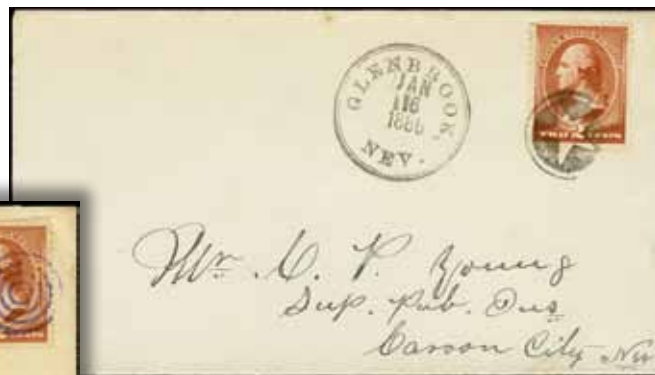 GLENBROOK
JAN
16
NEV.
TWO CENTS
Mr. C. P. Young
Sup. Pub. Ins
Carson City Nev